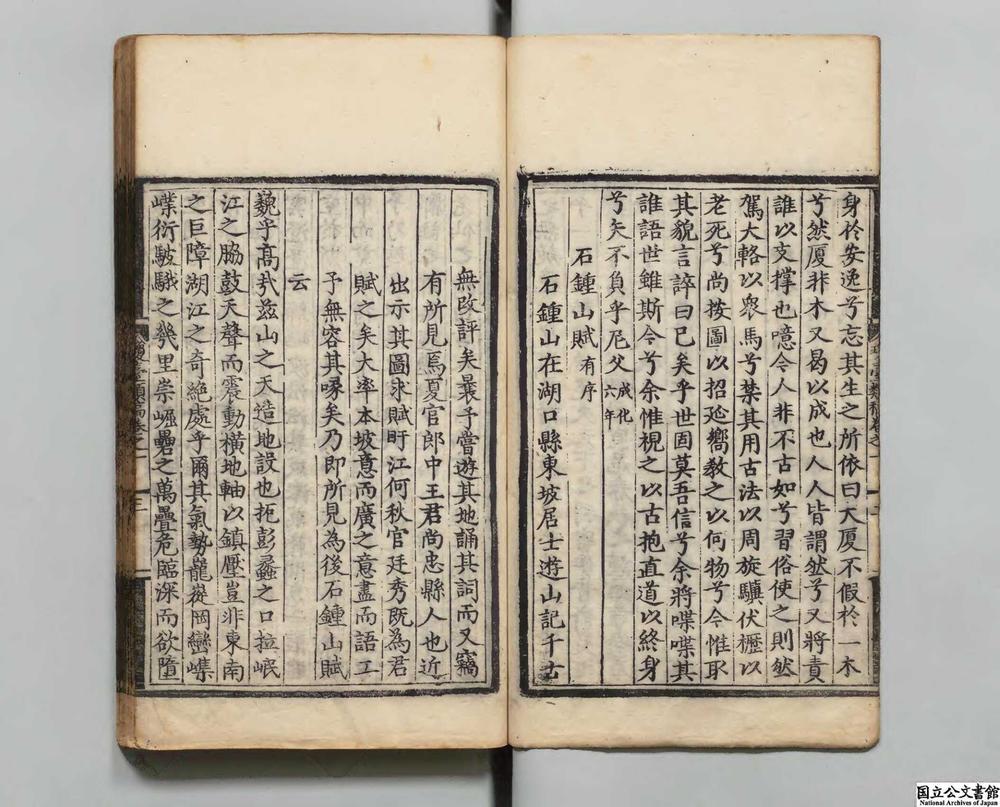 身於安逸兮忘其生之所依曰大厦不假於一木
兮然厦非木又曷以成也人人皆謂然兮又將責
誰以支撑也噫今人非不古如兮習俗使之則然
駕大輅以衆馬兮禁其用古法以周旋驥伏櫪以
老死兮尚按圖以招延嚮敎之以何物兮今惟取
其貌言誶曰已矣乎世固莫吾信兮余將喋喋其
誰語世雖斯今兮余惟視之以古抱直道以終身
兮矢不負乎尼父成化六年
石鍾山賦有序
石鍾山在湖口縣東坡居士遊山記千古
無改評矣曩予嘗遊其地誦其詞而又竊
有所見焉夏官郎中王君尚忠縣人也近
出示其圖求賦盱江何秋官廷秀既為君
賦之矣大率本坡意而廣之意盡而語工
予無容其喙矣乃即所見為後石鍾山賦
云
巍乎高哉兹山之天造地設也扼彭蠡之口拉岷
江之脇鼓天聲而震動橫地軸以鎮壓豈非東南
之巨障湖江之奇絶處乎爾其氣勢巃嵸岡巒㠎
嶫衍駊騀之幾里崇崛礨之萬疊危臨深而欲墮
國立公文書館
National Archives of Japan